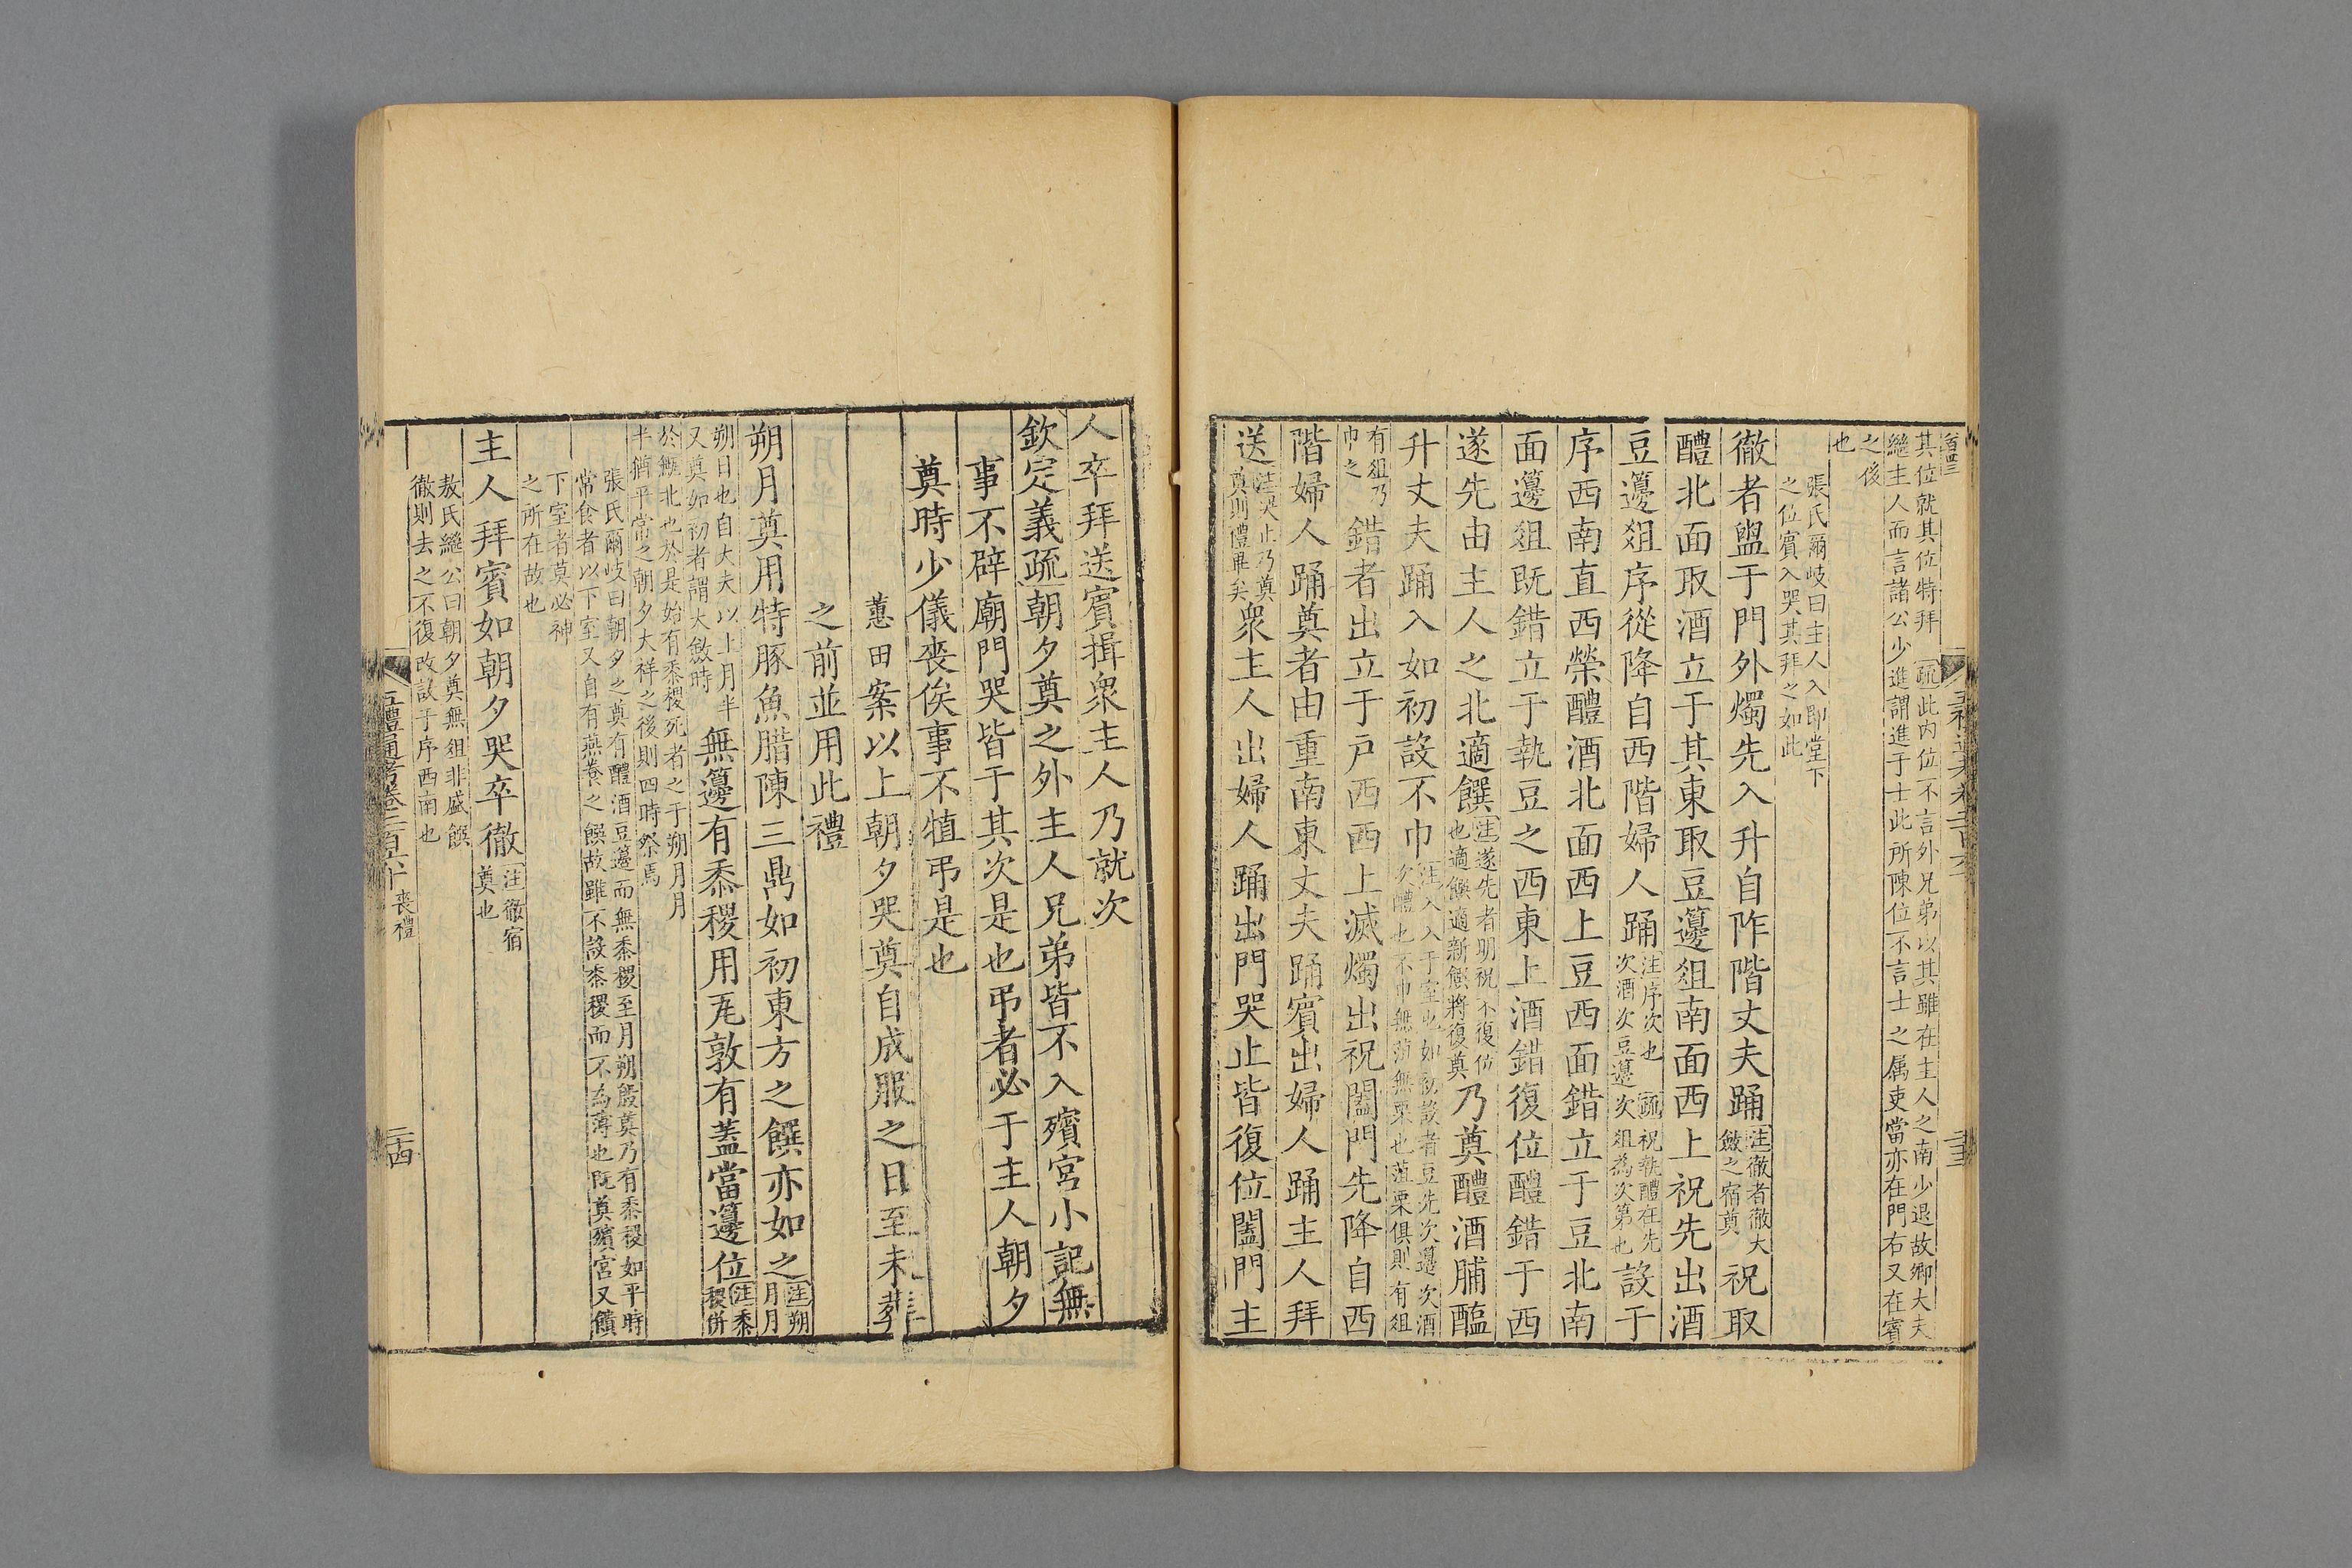 其位就其位特拜 疏此内位不言外兄弟以其雖在主人之南少退故卿大夫
繼主人而言諸公少進謂進于士此所陳位不言士之属吏當亦在門右又在賓
之後
也
張氏爾岐曰主人入即堂下
之位賓入哭其拜之如此
徹者盥于門外燭先入升自阼階丈夫踊 注徹者徹大斂之宿奠 祝取
醴北面取酒立于其東取豆籩俎南面西上祝先出酒
豆籩俎序從降自西階婦人踊 注序次也 疏祝執醴在先次酒次豆籩次俎為次第也 設于
序西南直西榮醴酒北面西上豆西面錯立于豆北南
面籩俎既錯立于執豆之西東上酒錯復位醴錯于西
遂先由主人之北適饌 注遂先者明祝不復位也適饌適新饌將復奠 乃奠醴酒脯醢
升丈夫踊入如初設不巾 注入入于室也如初設者豆先次籩次酒次醴也不巾無菹無栗也菹栗俱則有俎
有俎乃巾之 錯者出立于戶西西上滅燭出祝闔門先降自西
階婦人踊奠者由重南東丈夫踊賓出婦人踊主人拜
送 注哭止乃奠奠則禮畢矣 衆主人出婦人踊出門哭止皆復位闔門主
人卒拜送賓揖衆主人乃就次
欽定義疏朝夕奠之外主人兄弟皆不入殯宮小記無
事不辟廟門哭皆于其次是也弔者必于主人朝夕
奠時少儀喪俟事不犆弔是也
蕙田案以上朝夕哭奠自成服之日至未葬
之前並用此禮
朔月奠用特豚魚腊陳三鼎如初東方之饌亦如之 注朔月月
朔日也自大夫以上月半又奠如初者謂大斂時 無籩有黍稷用瓦敦有蓋當籩位 注黍稷併
於甒北也於是始有黍稷死者之于朔月月
半猶平常之朝夕大祥之後則四時祭焉
張氏爾岐曰朝夕之奠有醴酒豆籩而無黍稷至月朔殷奠乃有黍稷如平時
常食者以下室又自有燕養之饌故雖不設黍稷而不為薄也既奠殯宮又饋
下室者莫必神
之所在故也
主人拜賓如朝夕哭卒徹 注徹宿奠也
敖氏繼公曰朝夕奠無俎非盛饌
徹則去之不復改設于序西南也
五禮通考卷二百六十 喪禮
二十四